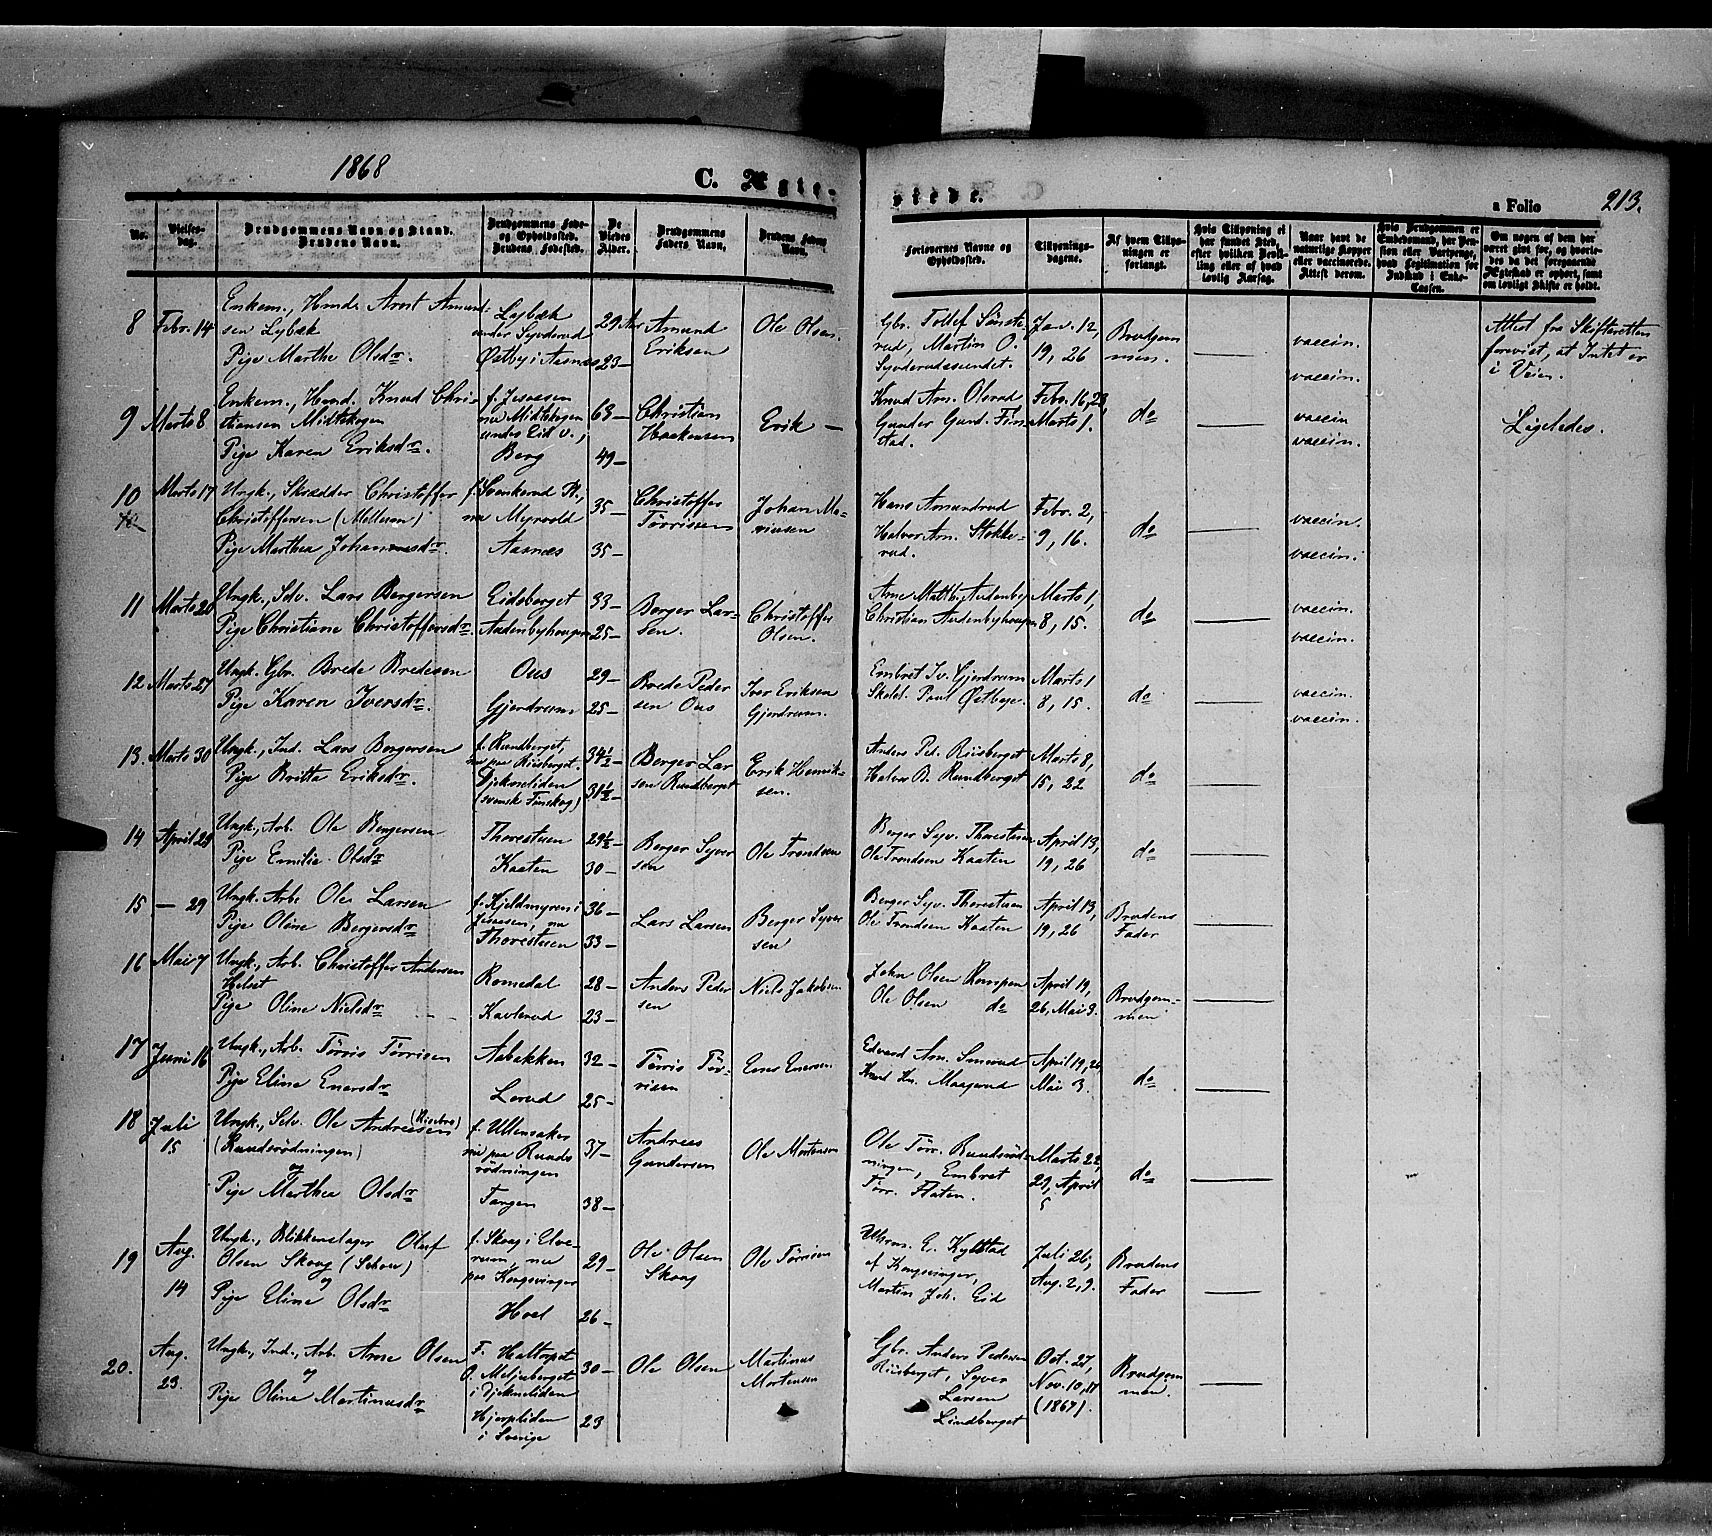 1868
C. Ægte-
stede.
a Folio 213.
No.
Vielses-
dag.
Brudgommens Navn og Stand.
Brudens Navn.
Brudgommens Føde-
og Opholdssted.
Brudens Fødested.
De
Viedes
Alder.
Brudgommens
Faders Navn.
Brudens Faders
Navn.
Forlovernes Navne og
Opholdssted.
Tillysnings-
dagene.
Af hvem Tillys-
ningen er
forlangt.
Hvis Tillysning ei
har fundet Sted,
efter hvilken Bevil-
ling eller af hvad
lovlig Aarsag.
Naar havt de
naturlige Kopper
eller vaccinerede.
Attest derom.
Hvis Brudgommen er
Embedsmand, har Pen-
sion eller Vartpenge,
hvad Legitimation for
Indskud i Enke-
Cassen.
Om nogen af dem har
været gift før, og hvorle-
des da det foregaaende
Ægteskab er ophørt, samt
om lovligt Skifte er holdt.
8 Febr. 14
Enkem., Huusm. Arvst Amund-
sen Lybæk
Pige Marthe Olsdr.
Lybæk
under Syvderud
Østby i Aasnes
29 Aar
23 —
Amund
Eriksen
Ole Olsen.
Gbr. Tollef Sønste-
rud, Martin O.
Syvderudssundet.
Jav. 12,
19, 26
Brudgom
men.
vaccin.
vaccin.
Attest fra Skifteretten
forevist, at Intet er
i Veien.
9 Marts 8
Enkem., Huusm. Knud Chri-
stiansen Midtskogen
Pige Karen Eriksdr.
f. Jevnsen
nu Midtskogen
under Eid v.,
Berg
63 —
49 —
Christian
Haakensen
Erik —
Knud Am. Olsrud
Gunder Gund. Fin-
stad.
Febr. 16, 23
Marts 1.
do
vaccin
vaccin.
Ligeledes.
10 Marts 17
Ungk., Skrædder Christoffer
Christoffersen (Mellum)
Pige Marthea Johannesdr.
nu Myrvold
Aasnes
35 —
35 —
Christoffer
Tørrissen
Johan Ma-
Hans Amundrud
Halvor Am. Stokke-
rud.
Febr. 2,
9, 16.
do
vaccin.
vaccin.
11 Marts 20
Ungk., Selv. Lars Bergersen
Pige Christiane Christoffersdr.
Eidsberget
Andenbyhaugen
33 —
25 —
Berger Lar-
sen.
Christoffer
Olsen.
Arne Matth. Andenby
Christian Andenbyhaugen
Marts 1,
8, 15.
do
vaccin.
vaccin.
12 Marts 27
Ungk. Gbr. Brede Bredesen
Pige Karen Iversdr.
Ous
Gjerdrum
29 —
25 —
Brede Peder
sen Ous
Iver Eriksen
Gjerdrum.
Embret Iv. Gjerdrum
Skolel. Paul Østbye.
Marts 1
8, 15.
do
vaccin.
vaccin.
13. Marts 30
Ungk., Ind. Lars Bergersen
Pige Britta Eriksdr.
f. Rundberget,
nu paa Riisberget.
Djekneliden
(svensk Finskog)
34½ —
31½ —
Berger Lar
sen Rundberget
Erik Henrik-
sen.
Anders Ped. Riisberget
Halvor B. Rundberget
Marts 8,
15, 22
do
14 April 29
Ungk., Arb. Ole Bergersen
Pige Emilie Olsdr
Thorestuen
Kaaten
29½ —
30 —
Berger Syver
sen
Ole Trondsen
Berger Syv. Thorestuen
Ole Trondsen Kaaten
April 13,
19, 26
do
15 — 29
Ungk. Arb. Ole Larsen
Pige Oline Bergersdr
f. Kjeldmyren i
Jevnsen, nu
Thorestuen
36 —
33 —
Lars Larsen
Berger Syver
sen
Berger Syv. Thorestuen
Ole Trondsen Kaaten
April 13,
19, 26
Brudens
Fader
16 Mai 7
Ungk., Arb. Christoffer Andersen
Helset
Pige Oline Nielsdr
Romedal
Kavlerud
28 —
23 —
Anders Peder
sen
Niels Jakobsen
John Olsen Rompen
Ole Olsen do
April 19,
26, Mai 3.
Brudgom-
men
17 Juni 16
Ungk., Arb. Tørris Tørrisen
Pige Eline Enersdr
Aabakken
Lorud
32 —
25 —
Tørris Tør-
risen
Ener Enersen
Edvard Am. Smerud
Knud Kn. Maagerud
April 19, 26
Mai 3.
do
18 Juli
15
Ungk., Selv. Ole Andreesen (Risebro)
(Rundsrødningen)
og
Pige Marthea Olsdr
f. Ullensaker
nu paa Runds
rødningen
Tangen
37 —
38 —
Andreas
Gundersen
Ole Mortensen
Ole Tørr. Rundsrød-
ningen, Embret
Tørr. Flaten.
Marts 22,
29, April
5
do
19 Aug.
14
Ungk., Blikkenslager Oluf
Olsen Skaag (Schou)
og
Pige Eline Olsdr
f. Skaag i Elve-
rum, nu
paa Kongsvinger
Hoel
29 —
26 —
Ole Olsen
Skaag
Ole Tørrisen
Uhrm. E. Kyllstad
af Kongsvinger,
Martin Joh. Eid
Juli 26,
Aug. 2, 9.
Brudens
Fader
20. Aug.
23.
Ungk., Ind., Arb. Arne Olsen
og
Pige Oline Martinusdr
F. Haltorpet
O. Meljesberget
i Djekneliden
Hjerpliden
i Sverige
30 —
23
Ole Olsen
Martinus
Mortensen
Gbr. Anders Pedersen
Riisberget, Syver
Larsen
Lindberget
Oct. 27,
Nov. 10, 17
(1867).
Brudgom
men.